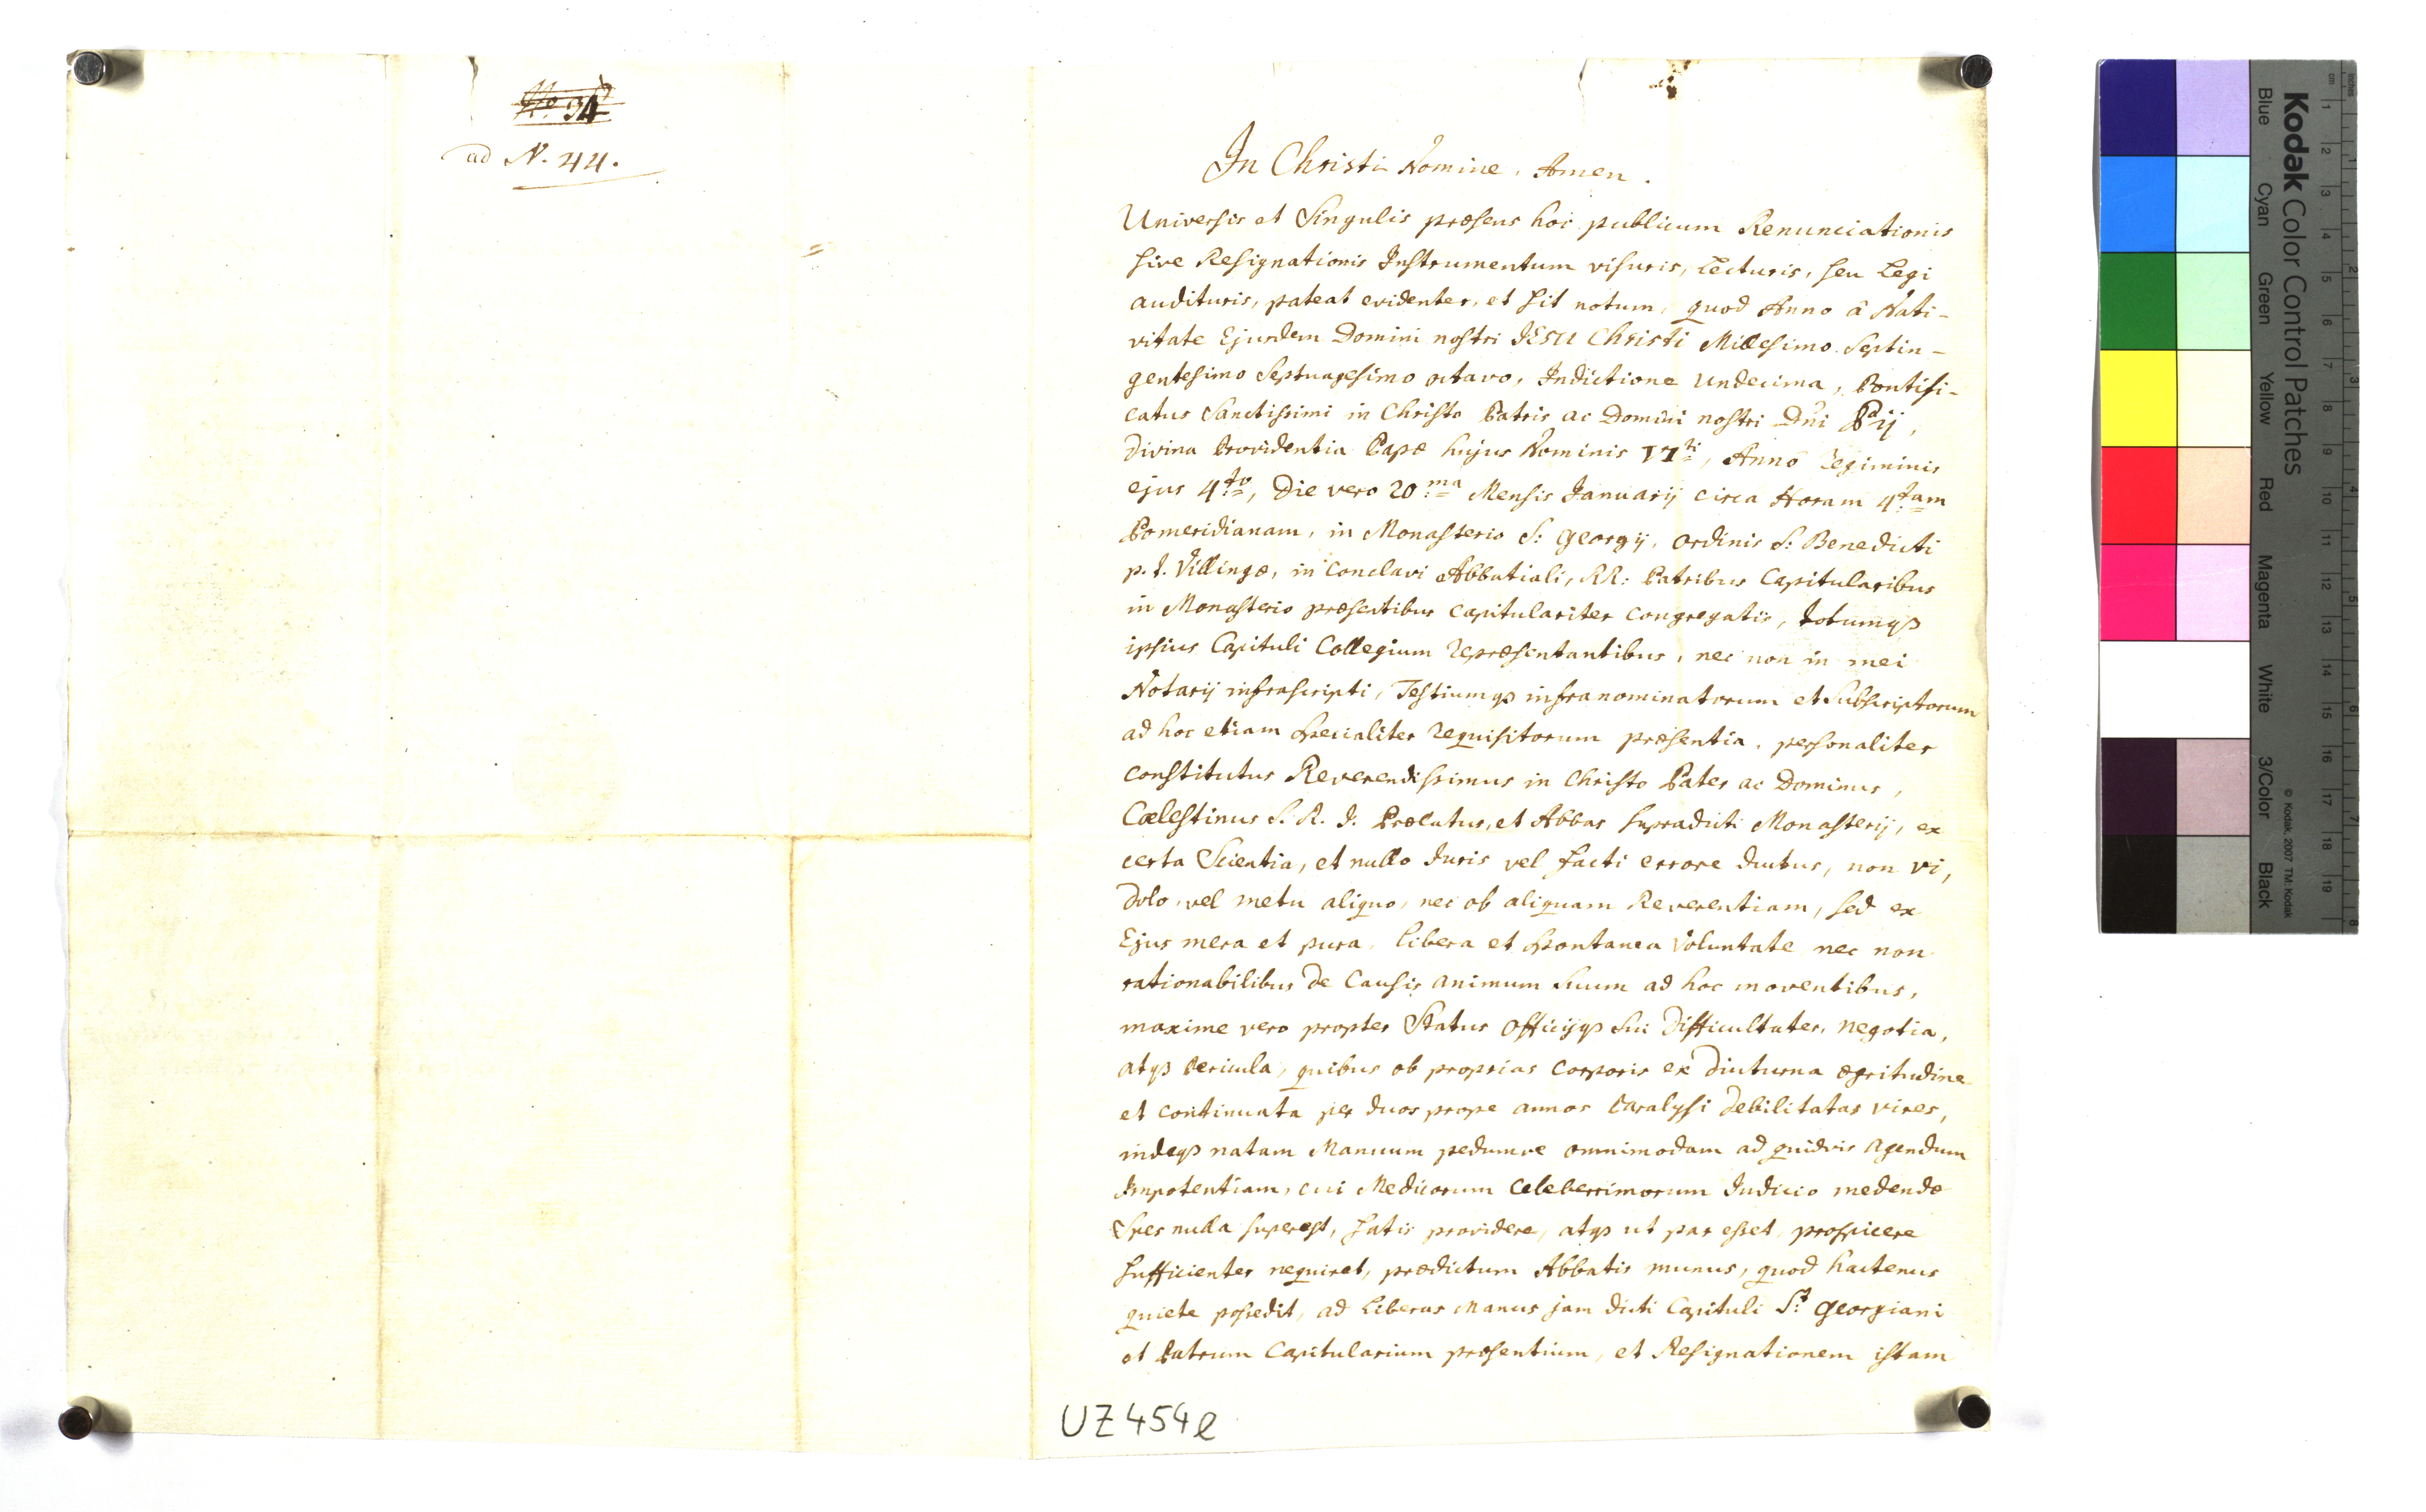 No. 34
ad N. 44.
In Christi Nomine. Amen.
Universis et Singulis præsens hoc publicum Renunciationis
sive Resignationis Instrumentum visuris, Lecturis, seu Legi
audituris, pateat evidenter, et sit notum, quod Anno â Nati-
vitate Ejusdem Domini nostri JESU Christi Millesimo Septin-
gentesimo Septuagesimo octavo, Indictione Undecima, Pontifi-
catus Sanctissimi in Christo Patris ac Domini nostri Dni Pij,
divina Providentia Papæ hujus Nominis VI ti, Anno Regiminis
ejus 4to, Die vero 20ma Mensis Januarij circa Horam 4tam
Pomeridianam, in Monasterio S: Georgij, ordinis S: Benedicti
p. t. Villingæ, in Conclavi Abbatiali, RR: Patribus Capitularibus
in Monasterio præsentibus Capitulariter Congregatis, totumqȝ
ipsius Capituli Collegium repræsentantibus, nec non in mei
Notarij infrascripti, Testiumqȝ infranominatorum et Subscriptorum
ad hoc etiam specialiter requisitorum præsentia, personaliter
constitutus Reverendissimus in Christo Pater ac Dominus,
Cælestinus S. R. J. Prælatus, et Abbas supradicti Monasterij, ex
certa Scientia, et nullo Juris vel facti errore ductus, non vi,
dolo, vel metu aliquo, nec ob aliquam Reverentiam, sed ex
Ejus mera et pura, libera et spontanea Voluntate nec non
rationabilibus de Causis animum Suum ad hoc moventibus,
maxime vero propter Status Officijqȝ Sui Difficultates, negotia,
atqȝ Pericula, quibus ob proprias Corporis ex diuturna ægritudine
et continuata per duos prope annos Paralysi debilitatas vires,
indeqȝ natam Manuum pedumve omnimodam ad quidvis Agendum
Impotentiam, cui Medicorum Celeberrimorum Judicio medendæ
Spes nulla superest, satis providere, atqȝ ut par esset, prospicere
sufficienter nequiret, prædictum Abbatis munus, quod hactenus
quiete possedit, ad Liberas Manus jam dicti Capituli St Georgiani
et Patrum Capitularium præsentium, et Resignationem istam
UZ 454 e
Kodak Color Control Patches
Blue
Cyan
Green
Yellow
Red
Magenta
White
3/Color
Black
© Kodak, 2007 TM: Kodak
cm 1 2 3 4 5 6 7 8 9 10 11 12 13 14 15 16 17 18 19
inches 1 2 3 4 5 6 7 8